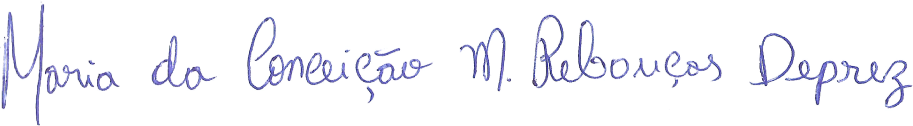 Maria da Conceição M. Rebouças Deprez